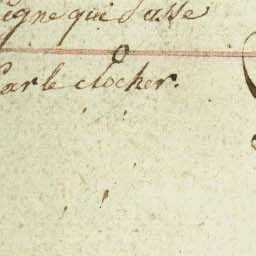 ligne qui passe
par le clocher.